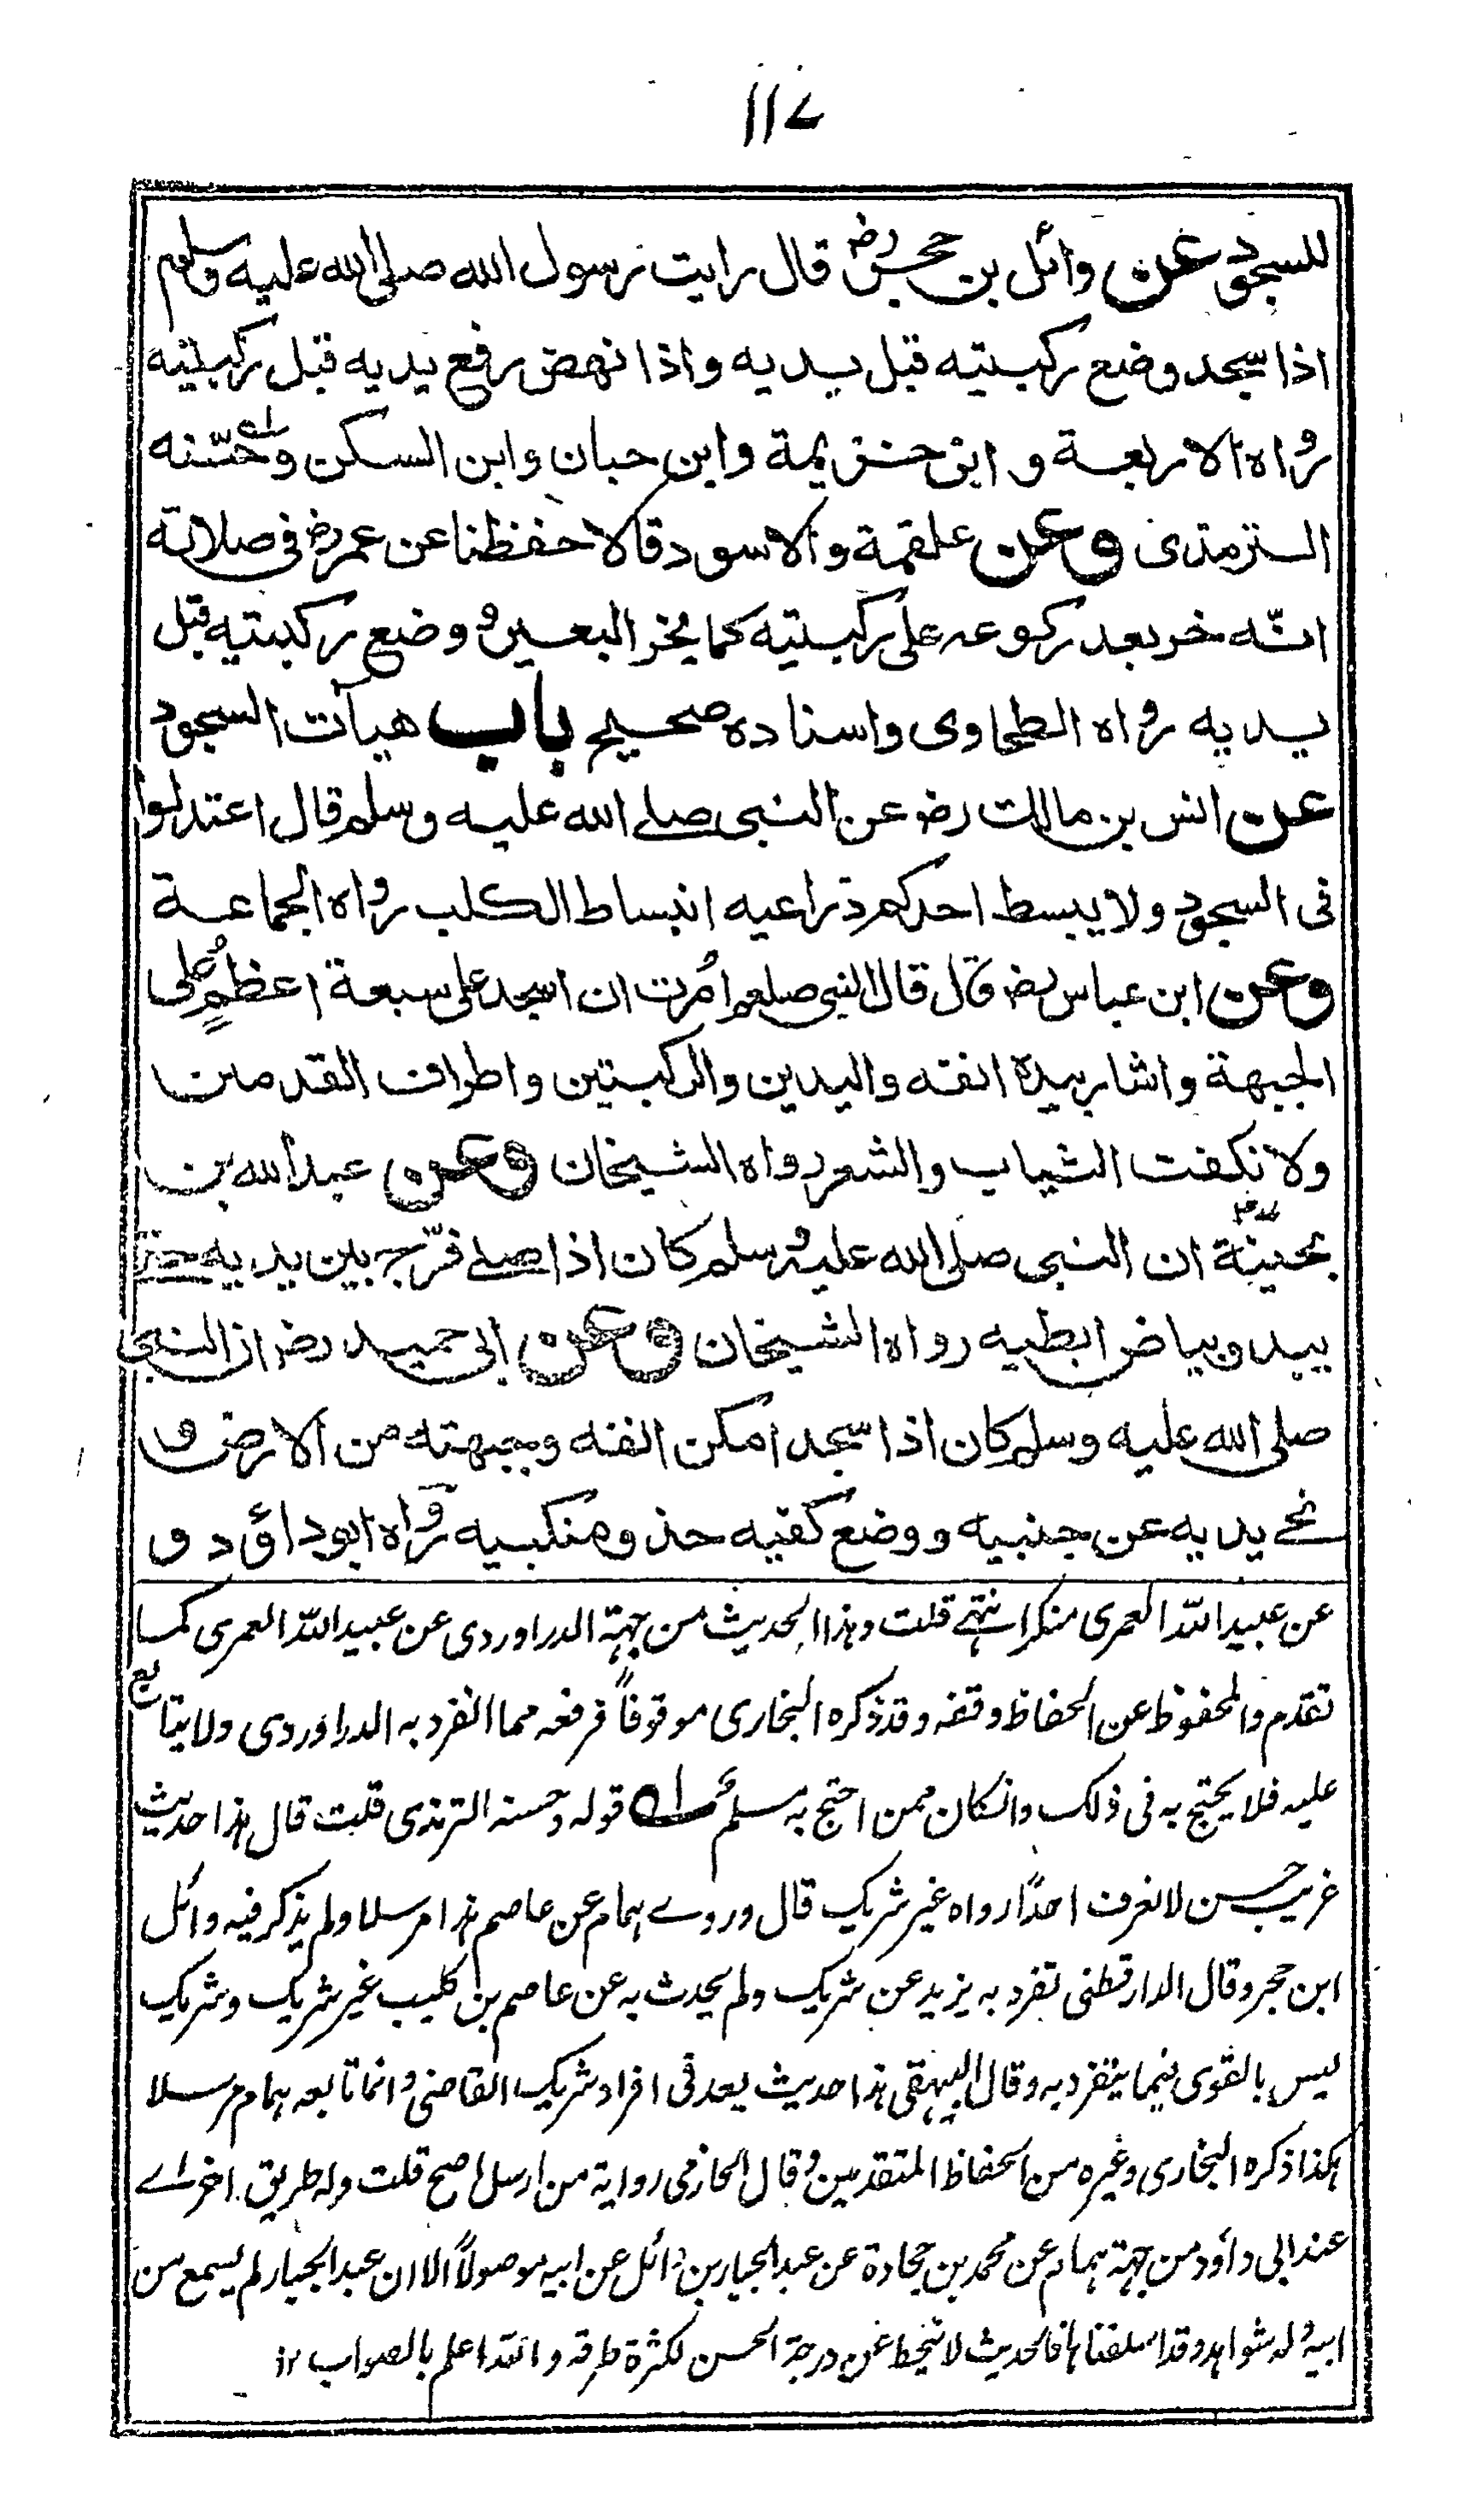 ۱۱۷
للسجود عن وائل بن حجر رض قال رايت رسول الله صلى الله عليه وسلم
اذا سجد وضع ركبتيه قبل يديه واذا نهض رفع يديه قبل ركبتيه
رواه الاربعة و ابن خزيمة وابن حبان وابن السكن وحسّنه
الترمذى وعن علقمة والاسود قالا حفظنا عن عمر رض فى صلاته
انّه خر بعد ركوعه على ركبتيه كما يخر البعير ووضع ركبتيه قبل
يديه رواه الطحاوى واسناده صحيح باب هيآت السجود
عن انس بن مالك رض عن النبى صلے الله عليه وسلم قال اعتدلوا
فى السجود ولا يبسط احدكم ذراعيه انبساط الكلب رواه الجماعة
وعن ابن عباس رض قال قال النبى صلعم اُمرت ان اسجد على سبعة اعظمٍ على
الجبهة واشار بيده انفه واليدين والركبتين واطراف القدمين
ولا نكفت الثياب والشعر رواه الشيخان وعن عبد الله بن
بحينة ان النبى صلى الله عليه وسلم كان اذا صلے فرّج بين يديه حتى
يبدو بياض ابطيه رواه الشيخان وعن ابى حميد رض ان النبى
صلى الله عليه وسلم كان اذا سجد امكن انفه وجبهته من الارض و
نحے يديه عن جنبيه ووضع كفيه حذو منكبيه رواه ابوداؤد و
عن عبيد الله العمرى منكر انتهے قلت وهذا الحديث من جهة الدراوردى عن عبيد الله العمرى كما
تقدم والمحفوظ عن الحفاظ وقفه وقد ذكره البخارى موقوفاً فرفعه مما انفرد به الدراوردى ولا يتابع
عليه فلا يحتج به فى ذلك وانكان ممن احتج به مسلم قوله وحسنه الترمذى قلت قال هذا حديث
غريب حسن لا نعرف احدًا رواه غير شريك قال وروے همام عن عاصم هذا مرسلا ولم يذكر فيه وائل
ابن حجر وقال الدارقطنى تفرد به يزيد عن شريك ولم يحدث به عن عاصم بن كليب غير شريك وشريك
ليس بالقوى فيما يتفرد به وقال البيهقى هذا حديث يعد فى افراد شريك القاضى وانما تابعه همام مرسلا
هكذا ذكره البخارى وغيره من الحفاظ المتقدمين وقال الحازمى رواية من ارسل اصح قلت وله طريق اخرے
عند ابى داؤد من جهة همام عن محمد بن جحادة عن عبد الجبار بن وائل عن ابيه موصولاً الا ان عبد الجبار لم يسمع من
ابيه وله شواهد وقد اسلفناها فالحديث لا ينحط عن درجة الحسن لكثرة طرقه والله اعلم بالصواب ۱۲